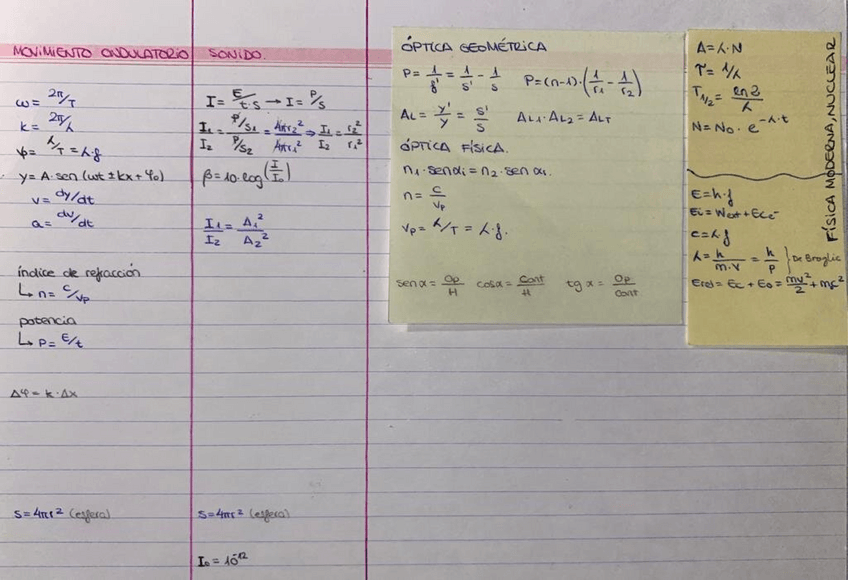 MOVIMIENTO ONDULATORIO
ω = 2π/T
k = 2π/λ
vp = λ/T = λ·f
y = A·sen(ωt ± kx + φ0)
v = dy/dt
a = dv/dt
índice de refracción
↳ n = c/vp
potencia
↳ P = E/t
Δφ = k·Δx
S = 4πr² (esfera)
SONIDO.
I = E/t·s → I = P/s
I1/I2 = P/S1 / P/S2 = 4πr2²/4πr1² ⇒ I1/I2 = r2²/r1²
β = 10·log(I/I0)
I1/I2 = A1²/A2²
S = 4πr² (esfera)
I0 = 10^-12
ÓPTICA GEOMÉTRICA
P = 1/f' = 1/s' - 1/s P = (n-1)·(1/r1 - 1/r2)
AL = y'/y = s'/s AL1·AL2 = ALT
ÓPTICA FÍSICA.
n1·senαi = n2·sen
n = c/vp
vp = λ/T = λ·f.
senα = Op/H cosα = Cont/H tgα = Op/Cont
FÍSICA MODERNA, NUCLEAR
A = λ·N
τ = 1/λ
T1/2 = ln2/λ
N = N0·e^-λ·t
E = h·f
Ei = Wext + Ece-
c = λ·f
λ = h/m·v = h/p } De Broglie
Erel = Ec + E0 = mv²/2 + mc²